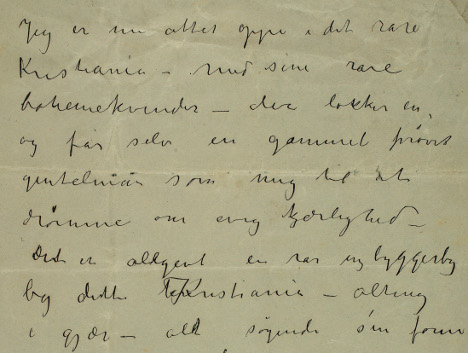 Jeg er nu altså oppe i det rare
Kristiania – med sine rare
bohemekvinder – der lokker en,
og får selv en gammel prøvet
gentelman som mig til at
drømme om evig kjærlighed –
Det er alligevel en rar nybyggerby
dette Kristiania – alting
i gjær – alt søgende sin form